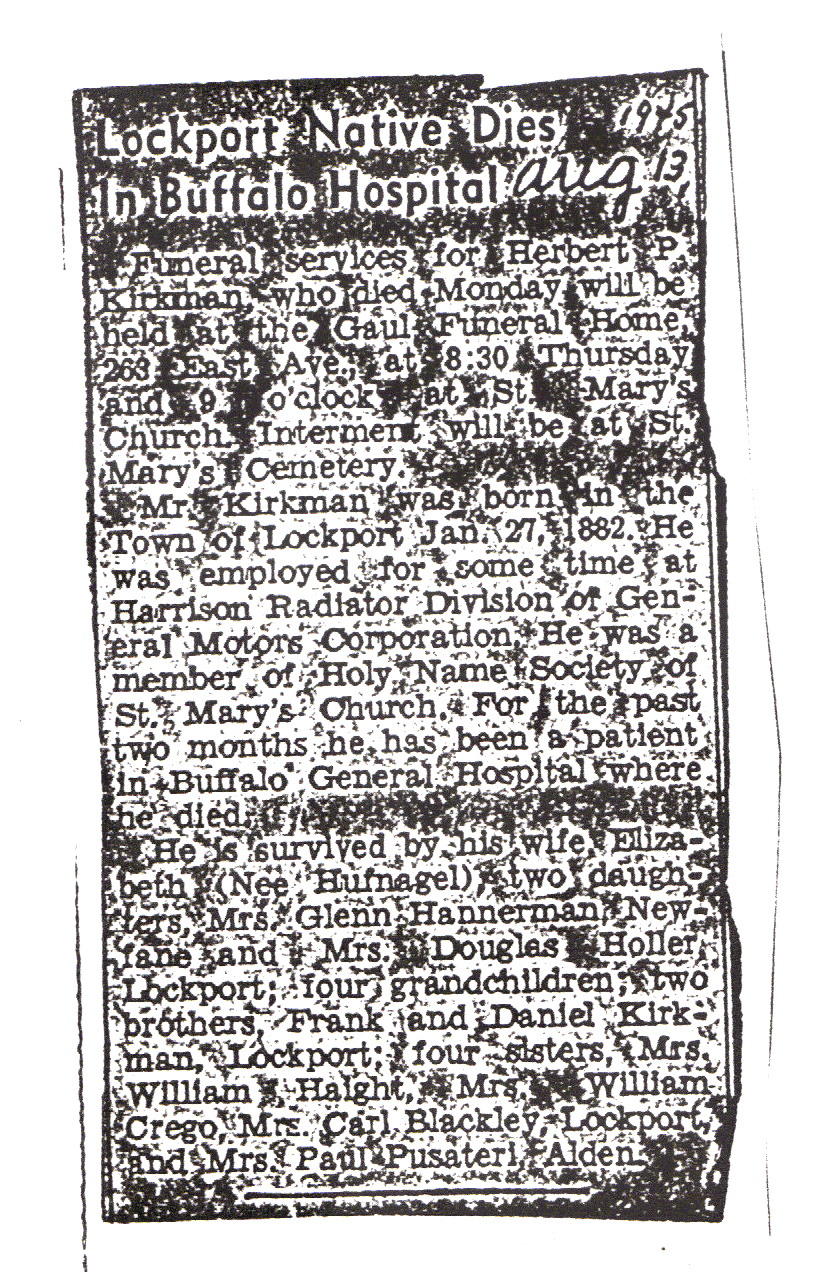 Lockport Native Dies 1945
In Buffalo Hospital aug 13,
Funeral services for Herbert P.
Kirkman who died Monday will be
held at the Gaul Funeral Home,
263 East Ave., at 8:30 Thursday
and 9 o'clock at St. Mary's
Church. Interment will be at St.
Mary's Cemetery.
Mr. Kirkman was born in the
Town of Lockport Jan. 27, 1882. He
was employed for some time at
Harrison Radiator Division of Gen-
eral Motors Corporation. He was a
member of Holy Name Society of
St. Mary's Church. For the past
two months he has been a patient
in Buffalo General Hospital where
he died.
He is survived by his wife, Eliza-
beth (Nee Hufnagel), two daugh-
ters, Mrs. Glenn Hannerman, New-
fane and Mrs. Douglas Holler,
Lockport; four grandchildren; two
brothers, Frank and Daniel Kirk-
man, Lockport; four sisters, Mrs.
William Haight, Mrs. William
Crego, Mrs. Carl Blackley, Lockport,
and Mrs. Paul Pusateri, Alden.